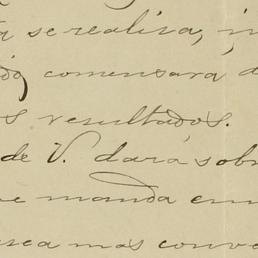 se realisa, in
comensará d
s resultados.
de V. dará sob
e manda em
sea mas conve